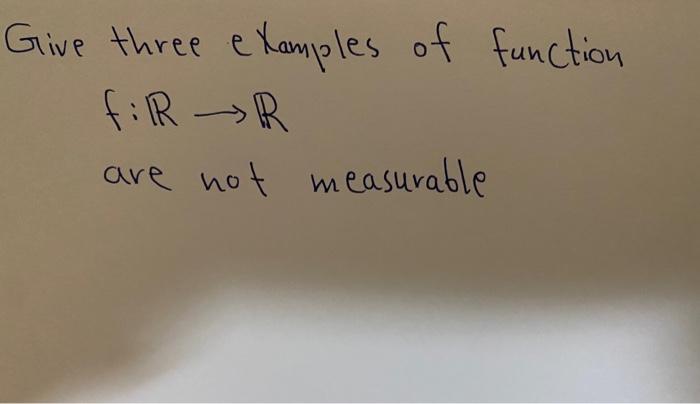 Give three examples of function
f: ℝ → ℝ
are not measurable